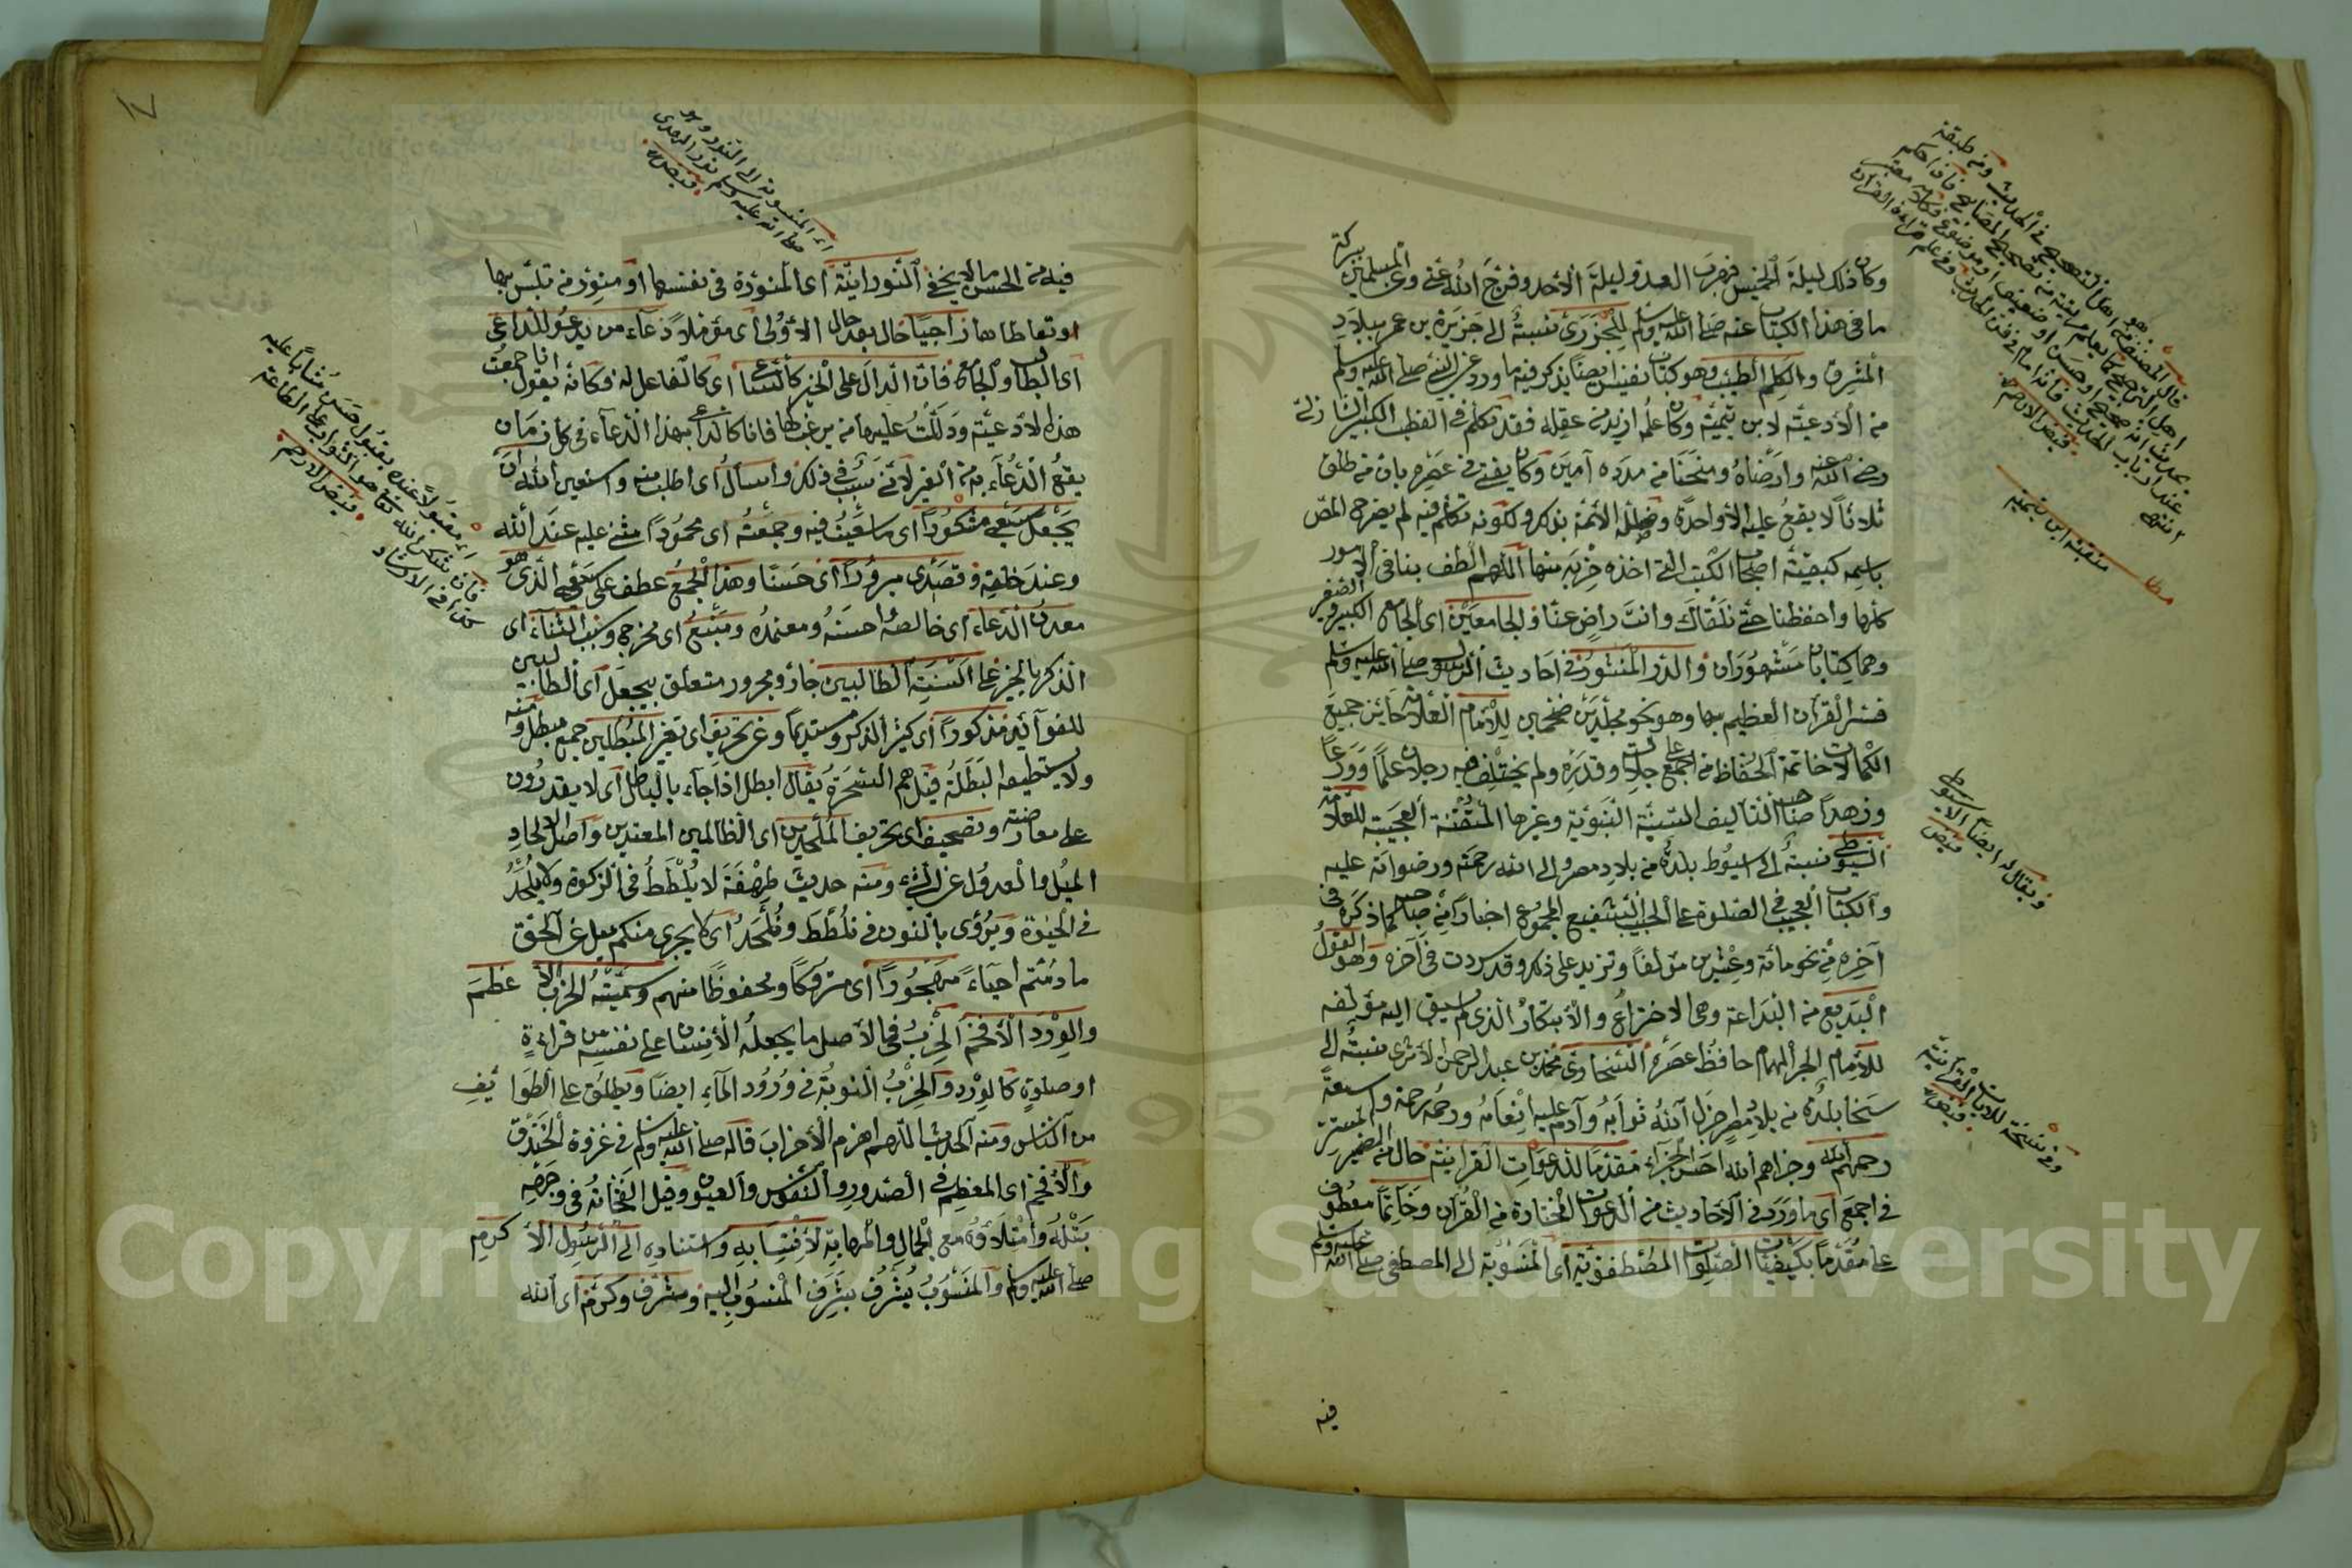 وكان ذلك ليلة الخميس فهرب العدو ليلة الأحد وفرج الله عني وعن المسلمين ببركة
ما في هذا الكتاب عنه صلى الله عليه وسلم للجزري نسبةً إلى جزيرة بن عمر ببلاد
المشرق والكلم الطيب وهو كتاب نفيس ايضا يذكر فيه ما ورد عن النبي صلى الله عليه وسلم
من الأدعية لابن تيمية وكان علمه ازيد من عقله فقد تكلم في القطب الكبير الشاذلي
رضي الله عنه وارضاه ومنحنا من مدده آمين وكان يفتي في عصره بان من طلق
ثلاثاً لا يقع عليه الا واحدة وضلله الأئمة بذلك ولكونه تكلم فيه لم يصرح المص
باسمه كبقية اصحاب الكتب التي اخذ حزبه منها اللهم الطف بنا في الأمور
كلها واحفظنا حتى نلقاك وانت راض عنا والجامعين اى الجامع الكبير والصغير
وهما كتابان مشهوران والدر المنثور في احاديث الرسول صلى الله عليه وسلم
فسر القرآن العظيم بها وهو نحو مجلدين ضخمين للإمام العلامة حائز جميع
الكمالات خاتمة الحفاظ من اجمع على جلالته وقدره ولم يختلف فيه رجلان علماً وورعاً
وزهداً صاحب التآليف السنية النبوية وغيرها المتقنة العجيبة للعلامة
السيوطي نسبةً إلى اسيوط بلدة من بلاد مصر إلى الله رحمته ورضوانه عليه
والكتاب العجيب في الصلوة على الحبيب الشفيع المجموع اخباراً من صاحبه كما ذكره في
آخره من نحو مائة وعشرين مؤلفاً وتزيد على ذلك وقد سردت في آخره وهو القول
البديع من البداعة وهي الاختراع والأبتكار الذى لم يسبق اليه مؤلفه
للإمام الحبر الهمام حافظ عصره السخاوي محمد بن عبد الرحمن الأثرى نسبةً إلى
سخا بلدة من بلاد مصر اجزل الله ثوابه وآدم عليه انعامه ورحمه رحمة واسعة
رحمهم الله وجزاهم الله احسن الجزاء مقدما للدعوات القرانية حال من الضمير المستتر
في اجمع اى ما ورد في الأحاديث من الدعوات المختارة من القرآن وخاتما معطوف
على مقدماً بكيفيات الصلوات المصطفوية اى المنسوبة إلى المصطفى صلى الله عليه وسلم
فيه
قال المصنف اهل التصحيح في الحديث
منقبة ابن تيمية
مطل
ويقال له ايضاً الاسيوطي
فيض
وفي نسخة للايات القرآنية
فيض
فيه من الحسن ما لا يخفى النورانية اى المنورة في نفسها او منور من تلبس بها
او تعاطاها راجيا حال بعد حال الأولى اى مؤملاً دعاء من يدعو للداعي
اى الطالب والجامع فان الدال على الخير كالساعي اى كالفاعل له فكانه يقول انا جمعت
هذه الأدعية ودللت عليها من يرغبها فانا كالداعي بهذا الدعاء في كل زمان
يقع الدعاء به من الغير لأني سبب في ذلك واسأل اى اطلب منه واستعين الله أن
يجعل سعيي مشكوراً اى ما سعيت فيه وجمعته اى محموداً مثني عليه عند الله
وعند خلقه وقصدى مبروراً اى حسنا وهذا الجمع عطف على سعيي الذى هو
معدن الدعاء اى خالصه واحسنه ومعتمده ومنبع اى مخرجه وسبب الثناء اى
الذكر بالخير على السنة الطالبين جار ومجرور متعلق بيجعل اى الطالبين
للفوائد مذكوراً اى كثير الذكر ومستديماً وعن تحريف اى تغير المبطلين جمع مبطل ومنه
ولا يستطيعه البطلة قيل هم السحرة يقال ابطل اذا جاء بالباطل اى لا يقدرون
على معارضته وتصحيف اى تحريف الملحدين اى الظالمين المعتدين واصل الإلحاد
الميل والعدول عن الشيء ومنه حديث طهفة لا يلطط في الزكوة ولا يلحد
في الحيوة ويروى بالنون في نلطط ونلحد اى لا يجرى منكم ميل عن الحق
ما دمتم احياءً مهجوراً اى متروكاً ومحفوظا منهم وسميته الحزب الأعظم
والورد الأفخم الحزب في الأصل ما يجعله الأنسان على نفسه من قراءةٍ
او صلوةٍ كالورد والحزب النوبة في ورود الماء ايضاً ويطلق على الطوايف
من الناس ومنه الحديث اللهم اهزم الأحزاب قاله صلى الله عليه وسلم في غزوة الخندق
والأفخم اى المعظم في الصدور والنفوس والعيون وقيل الفخامة في وجهه
نبله وامتلاؤه مع الجمال والمهابة لانتسابه واستناده إلى الرسول الأكرم
صلى الله عليه وسلم والمنسوب يشرف بشرف المنسوب اليه وشرف وكرم اى الله
اى المنسوبة إلى النور وهو
نور الهدى
صلى الله عليه وسلم
اى مقبولاً عنده بقبول حسن مثاباً عليه
فيض الارحم